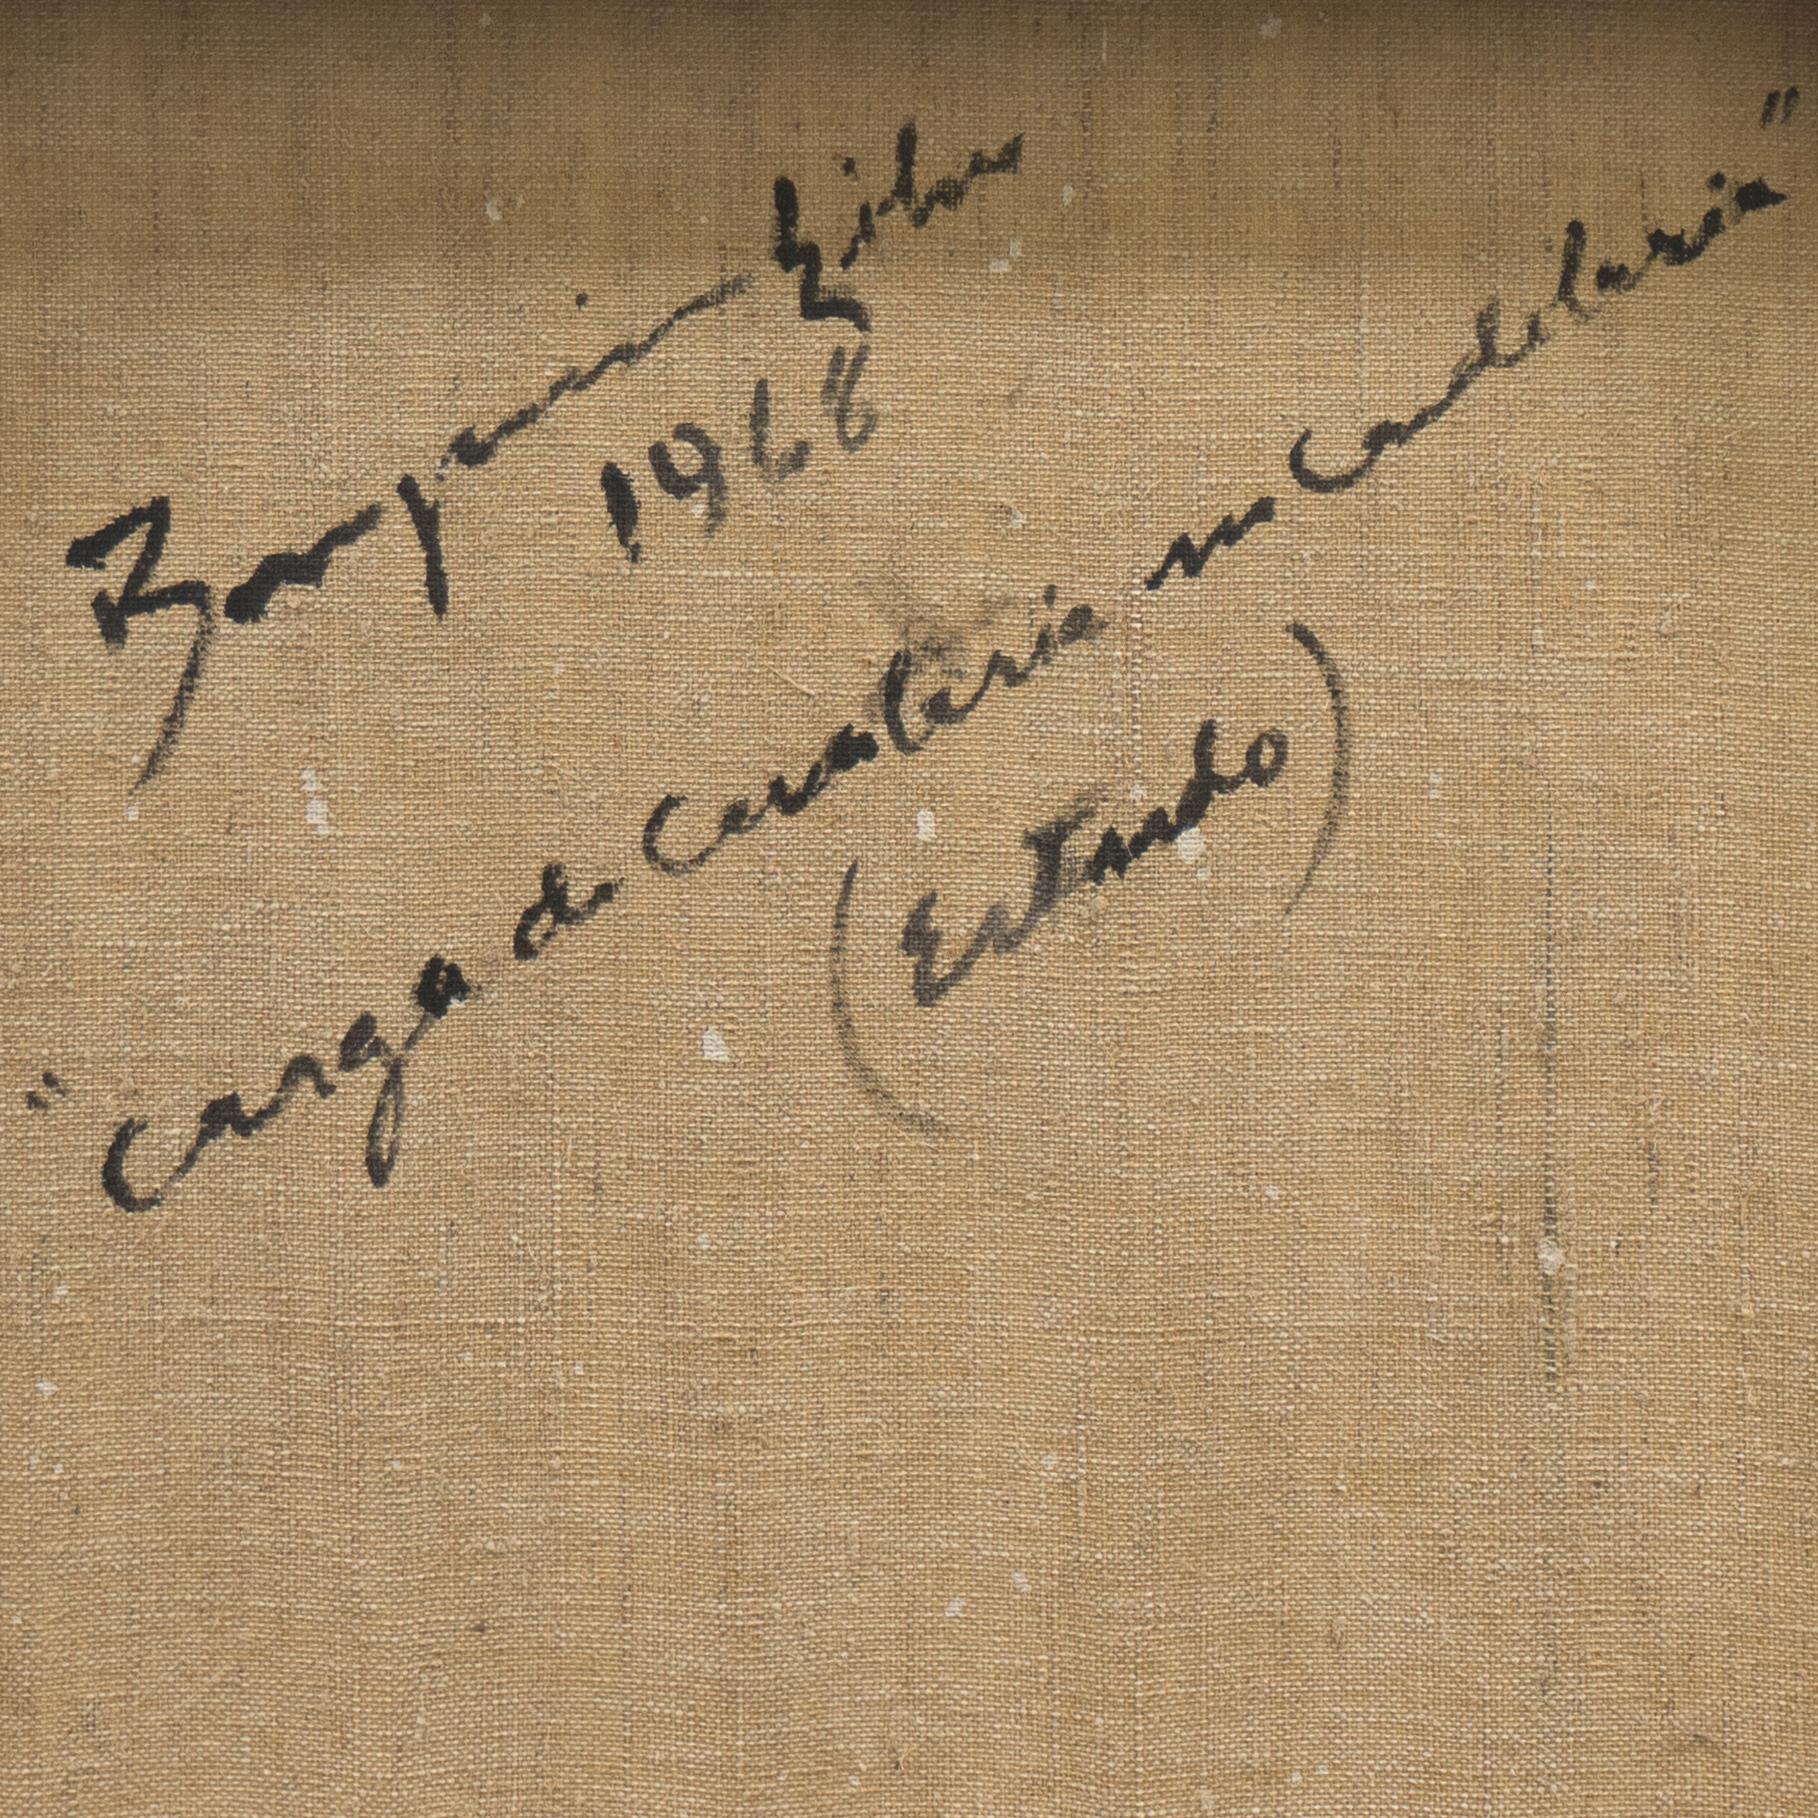 Benjamin Silva
1968
"Carga de Cavalaria na Candelaria"
(Estudo)